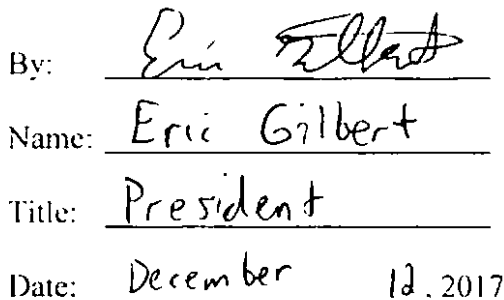 By: Eric Gilbert
Name: Eric Gilbert
Title: President
Date: December 12, 2017